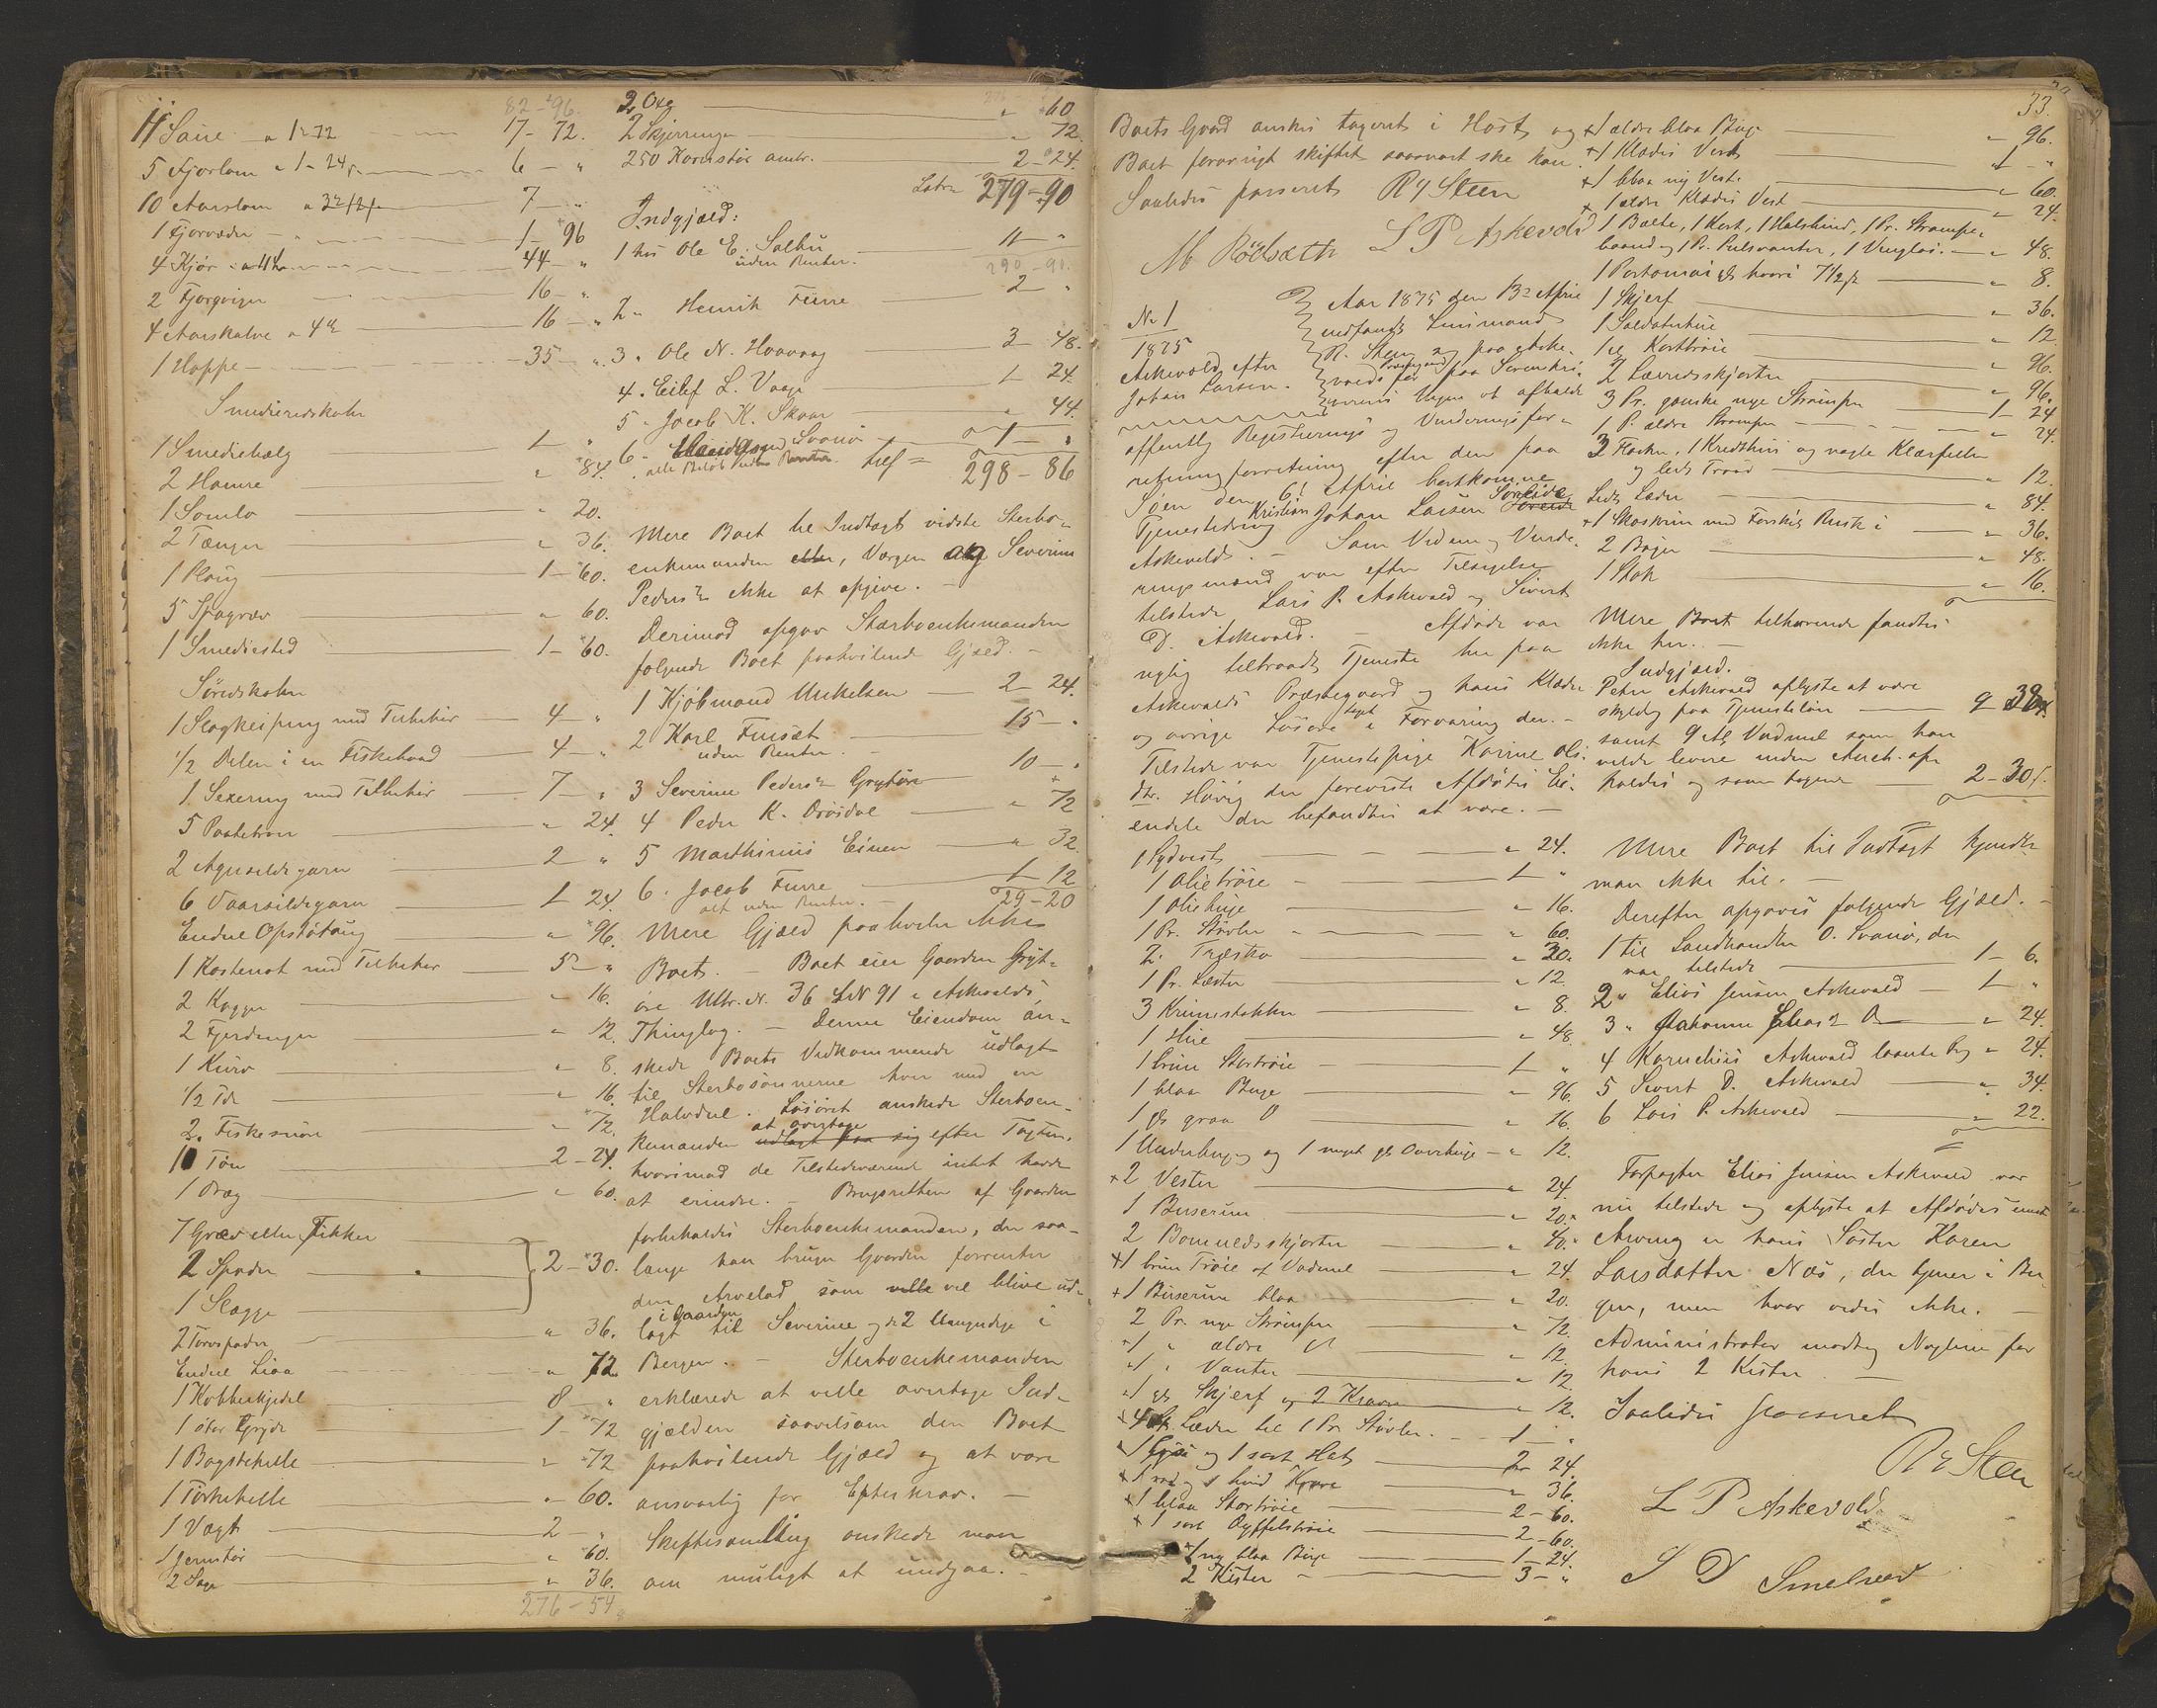 82-96.
11 Saue a 1-72 17-72.
5 Fjorlam a 1-24 6-"
10 Aarslam 7-"
1 Fjorvæder 1-96
4 Kjør 44-"
2 Fjorqviger 16-"
4 Aarskalve a 4 16-"
1 Hoppe 35-"
Smedieredskaber
1 Smediebælg 1-"
2 Hamre " 84.
1 " 20.
2 Tænger " 36.
1 Ploug 1-60.
5 " 60.
1 Smediested 1-60.
Søredskaber
1 med Tilbehør 4-"
1/2 Delen i en Fiskebaad 4-"
1 Sexering med Tilbehør 7-"
5 " 24.
2 2 "
6 Vaarsildegarn 1 24.
Endeel " 96.
1 Kastenot med Tilbehør 5-"
2 Kagger " 16.
2 Fjerdinger " 12.
1 Kurv " 8.
1/2 Tde " 16.
2 Fiskesnøre " 72.
10 2-24.
1 Dræg " 60.
7 Græv eller Hikker
2 Spader 2-30.
1 Slægge
2 Torvspader " 36.
Endeel Liaa " 72
1 Kobberkjedel 8-"
1 stor Gryde 1-72
1 Bagstehelle " 72
1 " 60.
1 Vægt 2-"
1 " 60.
2 Sage " 36.
276-54
2 Oxe " 60
2 Skjæringer " 72
250 Kornstør 2-24.
Latus 279-90
Indgjæld:
1 hos Ole E. Solbu 11-"
uden Renter.
290-90.
2 " Henrik Furre 2-"
3 " Ole N. Hovvaag 3-48.
4 " Eilef L. Vaage 1 24.
5 " Jacob K. Skaar " 44.
6 " Svanø 1-"
alle Beløb uden Renter. 298-86
Mere Boet til Indtægt vidste Sterbo-
enkemanden, Værgen og Severine
Pedersdr ikke at opgive. -
Derimod opgav Stærboenkemanden
følgende Boet paahvilende Gjæld. -
1 Kjøbmand Mikkelsen 2-24.
2 Karl Furset 15-"
uden Renter.
3 Severine Pedersdr Grytøre 10-"
4 Peder K. " 72
5 Marthinus Einen " 32
6. Jacob Furre 1-12
alt uden Renter. 29-20
Mere Gjæld paahviler ikke
Boet. - Boet eier Gaarden Gryt-
øre Mtr. N. 36 LN 91 i Askevolds
Thinglag. - Denne Eiendom øn-
skede Boets Vedkommende udlagt
til Sterbosønnerne hver med en
Halvdel. Løsøret ønskede Sterboen-
kemanden at overtage udlagt paa sig efter Taxten,
hvorimod de Tilstedeværende intet havde
at erindre. - Brugsretten af Gaarden
forbeholdes Sterboenkemanden, der saa-
længe han bruger Gaarden forrenter
den Arvelod som ville vil blive ud-
lagt i Gaarden til Severine og de 2 Umyndige i
Bergen. - Sterboenkemanden
erklærede at ville overtage Ind-
gjælden saavelsom den Boet
paahvilende Gjæld og at være
ansvarlig for Efterkrav. -
Skiftesamling ønskede man
om muligt at undgaa. -
33.
Boets Gaard ønskes taxeret i Høst og
Boet forøvrigt skiftet snarest ske kan.
Saaledes passeret R Y Steen
M Rødseth L P Askevold
No 1
1875
Askevold efter
Johan Larsen.
Aar 1875 den 13de April
indfandt Lensmand
R. Steen sig paa Aske-
volds Præstegaard
Vegne at afholde
offentlig Registrerings og Vurderingsfor-
retning efter den paa
Søen den 6t April bortkomne
Tjenestedreng Kristian Johan Larsen
Askevold. - Som Vidner og Vurde-
ringsmænd var efter Tilsigelse
tilstede Lars P. Askevold og Sivert
D. Askevold. - Afdøde var
nylig tiltraadt Tjeneste her paa
Askevolds Præstegaard og hans Klæder
og øvrige Løsøre taget i Forvaring der. -
Tilstede var Tjenestepige Karine Ols-
dtr. Høvig der foreviste Afdødes Ei-
endele der befandtes at være. -
1 Sydvest " 24.
1 Olietrøie 1 "
1 Oliehyre " 16.
1 Pr. Støvler " 60.
2. Træsko " 20.
1 Pr. Læster " 12.
3 " 8.
1 Hue " 48.
1 brun Stortrøie 1 "
1 blaa Buxe " 96.
1 gl graa D " 16.
1 Underbuxe og 1 meget gl Overbuxe " 12.
+ 2 Vester " 24.
1 Buserun " 20.
2 Bomuldsskjorter " 40.
+1 brun Trøie af Vadmel " 24.
+1 Buserun blaa " 20.
2 Pr. nye Strømper " 72.
1 " ældre do " 12.
1 " Vanter " 12.
1 gl Skjerf og 2 Kraver " 12.
Læder til 1 Pr. Støvler. 1 "
og 1 sort Hat 2 24.
1 rød og 1 hvid Krave " 36.
+1 blaa Stortrøie 2-60.
+1 sort Dyffelstrøie 2-60.
+1 ny blaa Buxe 1-24.
2 Kister 3-"
+1 ældre blaa Buxe " 96.
+1 Klædes Vest 1-"
+1 blaa ny Vest. " 60.
+1 ældre Klædes Vest " 24.
1 Bælte, 1 Kort, 1 Halsbind, 1 Pr. Strømpe-
baand og 1 Pr. Pulsvanter, 1 " 48.
1 Portomonæ gl hvori 7 1/2 s " 8.
1 Skjerf " 36.
1 Soldaterhue " 12
1 gl Korttrøie " 96.
2 Lærredsskjorter " 96.
3 Pr. ganske nye Strømper 1-24
1 P. ældre Strømper " 24.
3 Flasker, 1 Kridthus og nogle
og lidt Traad " 12.
Lidt Læder " 84.
+1 Skoskrin med Forskjelligt Rusk i " 36.
2 Bøger " 48.
1 Stok " 16.
Mere Boet tilhørende fandtes
ikke her. -
Indgjæld.
Peter Askevold oplyste at være
skyldig paa Tjenesteløn 9
samt 9 Al Vadmel som han
vilde levere
holdes og som 2-30
Mere Boet til Indtægt kjendte
man ikke til. -
Derefter opgaves følgende Gjæld. -
1 til Landhandler O. Svanø, der
var tilstede 1-6.
2 " Elias Jensen Askevold 1-"
3 " " 24.
4 Kornelius Askevold laante " 24.
5 Sivert D. Askevold " 34.
6 Lars P. Askevold " 22.
Forpagter Elias Jensen Askevold var
nu tilstede og oplyste at Afdødes eneste
Arving er hans Søster Karen
Larsdatter Næs, der tjener i Ber-
gen, men hvor vides ikke. -
Administrator modtog Nøglerne for
hans 2 Kister. -
Saaledes passeret
R Y Steen
L P Askevold
S D Smelvær